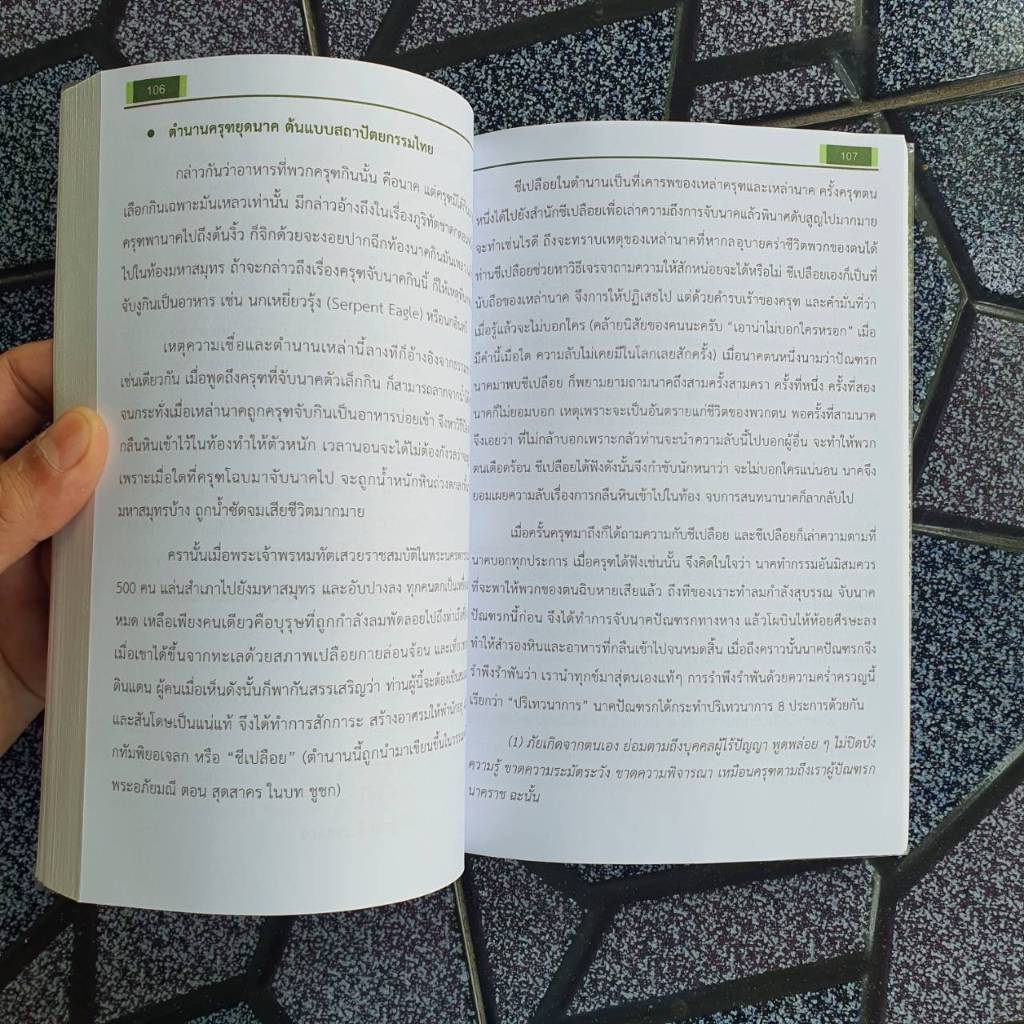 106
• ตำนานครุฑยุดนาค ต้นแบบสถาปัตยกรรมไทย
กล่าวกันว่าอาหารที่พวกครุฑกินนั้น คือนาค แต่ครุฑมิได้
เลือกกินเฉพาะมันเหลวเท่านั้น มีกล่าวอ้างถึงในเรื่องภูริทัตชาดก
ครุฑพานาคไปถึงต้นงิ้ว ก็จิกด้วยจะงอยปากฉีกท้องนาคกินมันเหลว
ไปในท้องมหาสมุทร ถ้าจะกล่าวถึงเรื่องครุฑจับนาคกินนี้ ก็ให้เหตุ
จับงูกินเป็นอาหาร เช่น นกเหยี่ยวรุ้ง (Serpent Eagle)
เหตุความเชื่อและตำนานเหล่านี้ลางทีก็อ้างอิงจาก
เช่นเดียวกัน เมื่อพูดถึงครุฑที่จับนาคตัวเล็กกิน ก็สามารถลากจาก
จนกระทั่งเมื่อเหล่านาคถูกครุฑจับกินเป็นอาหารบ่อยเข้า
กลืนหินเข้าไว้ในท้องทำให้ตัวหนัก เวลานอนจะได้ไม่ต้องกังวล
เพราะเมื่อใดที่ครุฑโฉบมาจับนาคไป จะถูกน้ำหนักหินถ่วง
มหาสมุทรบ้าง ถูกน้ำซัดจมเสียชีวิตมากมาย
ครานั้นเมื่อพระเจ้าพรหมทัตเสวยราชสมบัติในพระนคร
500 คน แล่นสำเภาไปยังมหาสมุทร และอับปางลง ทุกคนตกเป็น
หมด เหลือเพียงคนเดียวคือบุรุษที่ถูกกำลังลมพัดลอยไปถึง
เมื่อเขาได้ขึ้นจากทะเลด้วยสภาพเปลือยกายล่อนจ้อน
ดินแดน ผู้คนเมื่อเห็นดังนั้นก็พากันสรรเสริญว่า ท่านผู้นี้จะต้องเป็น
และสันโดษเป็นแน่แท้ จึงได้ทำการสักการะ สร้างอาศรมให้พำนัก
กทัมพิยอเจลก หรือ “ชีเปลือย” (ตำนานนี้ถูกนำมาเขียนขึ้นใน
พระอภัยมณี ตอน สุดสาคร ในบท ชูชก)
107
ชีเปลือยในตำนานเป็นที่เคารพของเหล่าครุฑและเหล่านาค ครั้งครุฑตน
หนึ่งได้ไปยังสำนักชีเปลือยเพื่อเล่าความถึงการจับนาคแล้วพินาศดับสูญไปมากมาย
จะทำเช่นไรดี ถึงจะทราบเหตุของเหล่านาคที่หากลอุบายคร่าชีวิตพวกของตนได้
ท่านชีเปลือยช่วยหาวิธีเจรจาถามความให้สักหน่อยจะได้หรือไม่ ชีเปลือยเองก็เป็นที่
นับถือของเหล่านาค จึงการให้ปฏิเสธไป แต่ด้วยคำรบเร้าของครุฑ และคำมันที่ว่า
เมื่อรู้แล้วจะไม่บอกใคร (คล้ายนิสัยของคนนะครับ “เอาน่าไม่บอกใครหรอก” เมื่อ
มีคำนี้เมื่อใด ความลับไม่เคยมีในโลกเลยสักครั้ง) เมื่อนาคตนหนึ่งนามว่าปัณฑรก
นาคมาพบชีเปลือย ก็พยายามถามนาคถึงสามครั้งสามครา ครั้งที่หนึ่ง ครั้งที่สอง
นาคก็ไม่ยอมบอก เหตุเพราะจะเป็นอันตรายแก่ชีวิตของพวกตน พอครั้งที่สามนาค
จึงเอยว่า ที่ไม่กล้าบอกเพราะกลัวท่านจะนำความลับนี้ไปบอกผู้อื่น จะทำให้พวก
ตนเดือดร้อน ชีเปลือยได้ฟังดังนั้นจึงกำชับนักหนาว่า จะไม่บอกใครแน่นอน นาคจึง
ยอมเผยความลับเรื่องการกลืนหินเข้าไปในท้อง จบการสนทนานาคก็ลากลับไป
เมื่อครั้นครุฑมาถึงก็ได้ถามความกับชีเปลือย และชีเปลือยก็เล่าความตามที่
นาคบอกทุกประการ เมื่อครุฑได้ฟังเช่นนั้น จึงคิดในใจว่า นาคทำกรรมอันมิสมควร
ที่จะพาให้พวกของตนฉิบหายเสียแล้ว ถึงทีของเราจะทำลมกำลังสุบรรณ จับนาค
ปัณฑรกนี้ก่อน จึงได้ทำการจับนาคปัณฑรกทางหาง แล้วโผบินให้ห้อยศีรษะลง
ทำให้สำรองหินและอาหารที่กลืนเข้าไปจนหมดสิ้น เมื่อถึงคราวนั้นนาคปัณฑรกจึง
รำพึงรำพันว่า เรานำทุกข์มาสู่ตนเองแท้ๆ การรำพึงรำพันด้วยความคร่ำครวญนี้
เรียกว่า “ปริเทวนาการ” นาคปัณฑรกได้กระทำปริเทวนาการ 8 ประการด้วยกัน
(1) ภัยเกิดจากตนเอง ย่อมตามถึงบุคคลผู้ไร้ปัญญา พูดพล่อย ๆ ไม่ปิดบัง
ความรู้ ขาดความระมัดระวัง ขาดความพิจารณา เหมือนครุฑตามถึงเราผู้ปัณฑรก
นาคราช ฉะนั้น